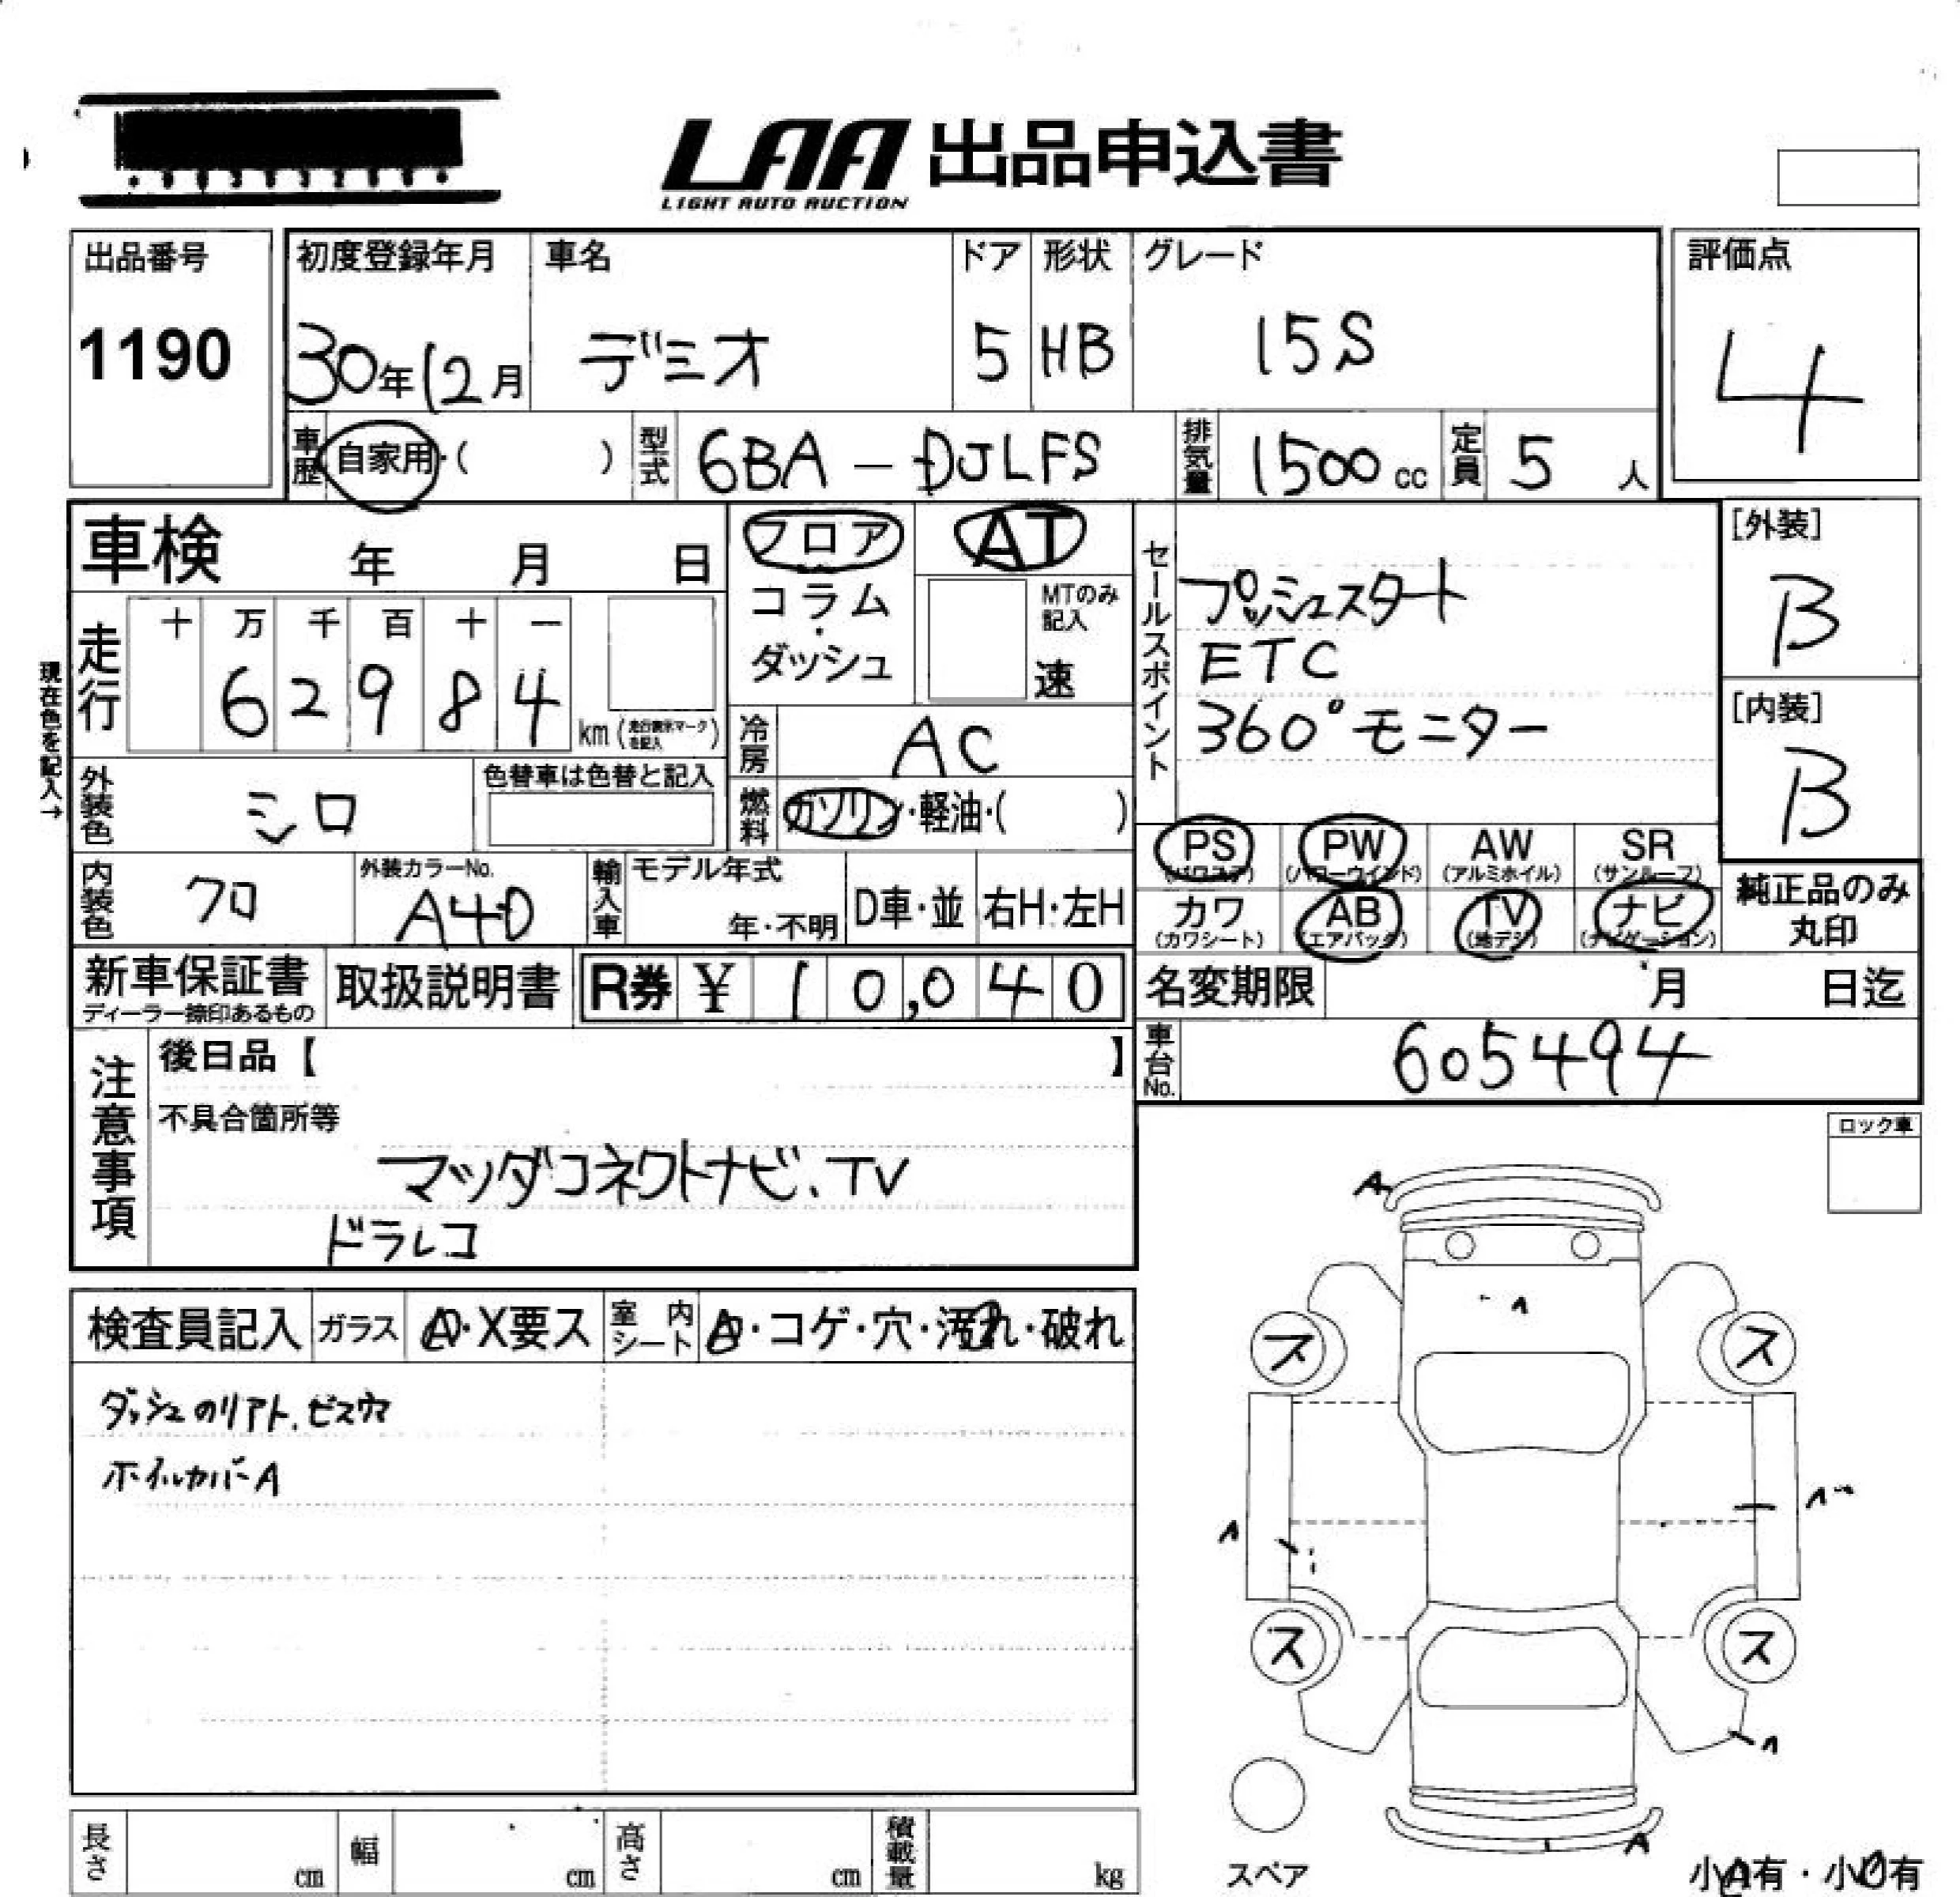 LAA 出品申込書
LIGHT AUTO AUCTION
出品番号
1190
初度登録年月
30年12月
車名
デミオ
ドア
5
形状
HB
グレード
15S
評価点
4
車歴 自家用・( )
型式 6BA-DJLFS
排気量 1500cc
定員 5人
車検 年 月 日
フロア
コラム
・
ダッシュ
AT
MTのみ
記入
速
セールスポイント
プッシュスタート
ETC
360°モニター
[外装]
B
[内装]
B
現在色を記入→
走行
十 万 千 百 十 一
6 2 9 8 4 km
冷房 AC
燃料 ガソリン・軽油・( )
外装色 シロ
色替車は色替と記入
内装色 クロ
外装カラーNo.
A4D
輸入車
モデル年式
年・不明
D車・並
右H・左H
PS PW AW SR
(パワステ) (パワーウインド) (アルミホイル) (サンルーフ)
カワ AB TV ナビ
(カワシート) (エアバック) (地デジ) (ナビゲーション)
純正品のみ
丸印
新車保証書
ディーラー捺印あるもの
取扱説明書
R券 ¥ 10,040
名変期限 月 日迄
車台No. 605494
注意事項
後日品【 】
不具合箇所等
マツダコネクトナビ、TV
ドラレコ
ロック車
検査員記入
ガラス
A・X要ス
室内シート
・コゲ・穴・汚れ・破れ
ダッシュのリアト、ビスウマ
ホイルカバーA
A
ス ス
ス ス
A
スペア
小A有・小U有
長さ cm
幅 cm
高さ cm
積載量 kg